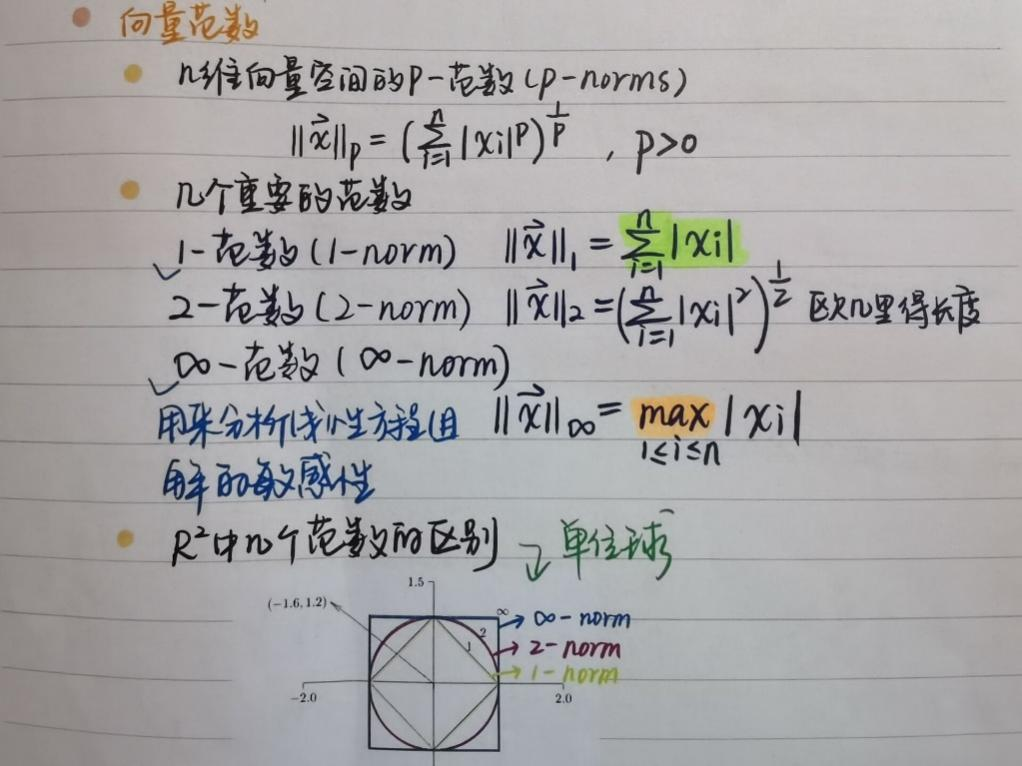 向量范数
n维向量空间的P-范数(p-norms)
||x⃗||p = (∑ⁿᵢ₌₁ |xi|^p)^(1/p) , p>0
几个重要的范数
1-范数(1-norm) ||x⃗||₁ = ∑ⁿᵢ₌₁ |xi|
2-范数(2-norm) ||x⃗||₂ = (∑ⁿᵢ₌₁ |xi|²)^(1/2) 欧几里得长度
∞-范数(∞-norm)
用来分析线性方程组 ||x⃗||∞ = max |xi|
1≤i≤n
解的敏感性
R²中几个范数的区别 单位球
1.5
(-1.6, 1.2)
∞ ∞-norm
2 2-norm
1 1-norm
-2.0 2.0